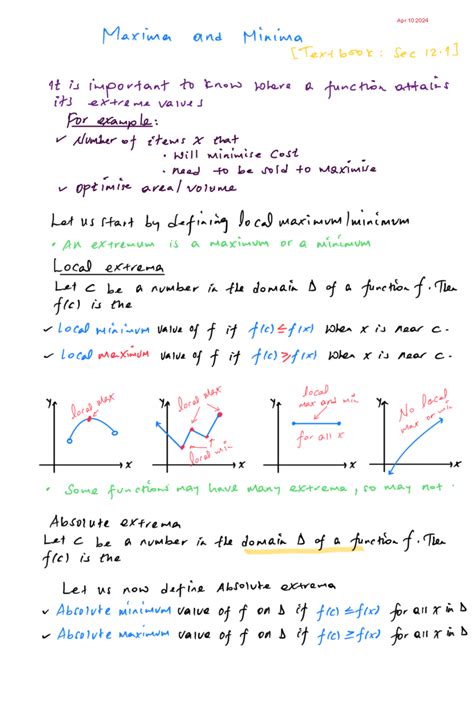 Apr 10 2024
Maxima and Minima
[Textbook: Sec 12.1]
It is important to know where a function attains
its extreme values
For example:
✓ Number of items x that
• will minimise cost
• need to be sold to maximise
✓ optimise area/volume
Let us start by defining local maximum/minimum
• An extremum is a maximum or a minimum
Local extrema
Let c be a number in the domain D of a function f. Then
f(c) is the
✓ Local minimum value of f if f(c) ≤ f(x) when x is near c.
✓ Local maximum value of f if f(c) ≥ f(x) when x is near c.
y local max x
y local max local min x
y local max and min for all x x
y No local max or min x
• Some functions may have many extrema, so may not.
Absolute extrema
Let c be a number in the domain D of a function f. Then
f(c) is the
Let us now define Absolute extrema
✓ Absolute minimum value of f on D if f(c) ≤ f(x) for all x in D
✓ Absolute maximum value of f on D if f(c) ≥ f(x) for all x in D